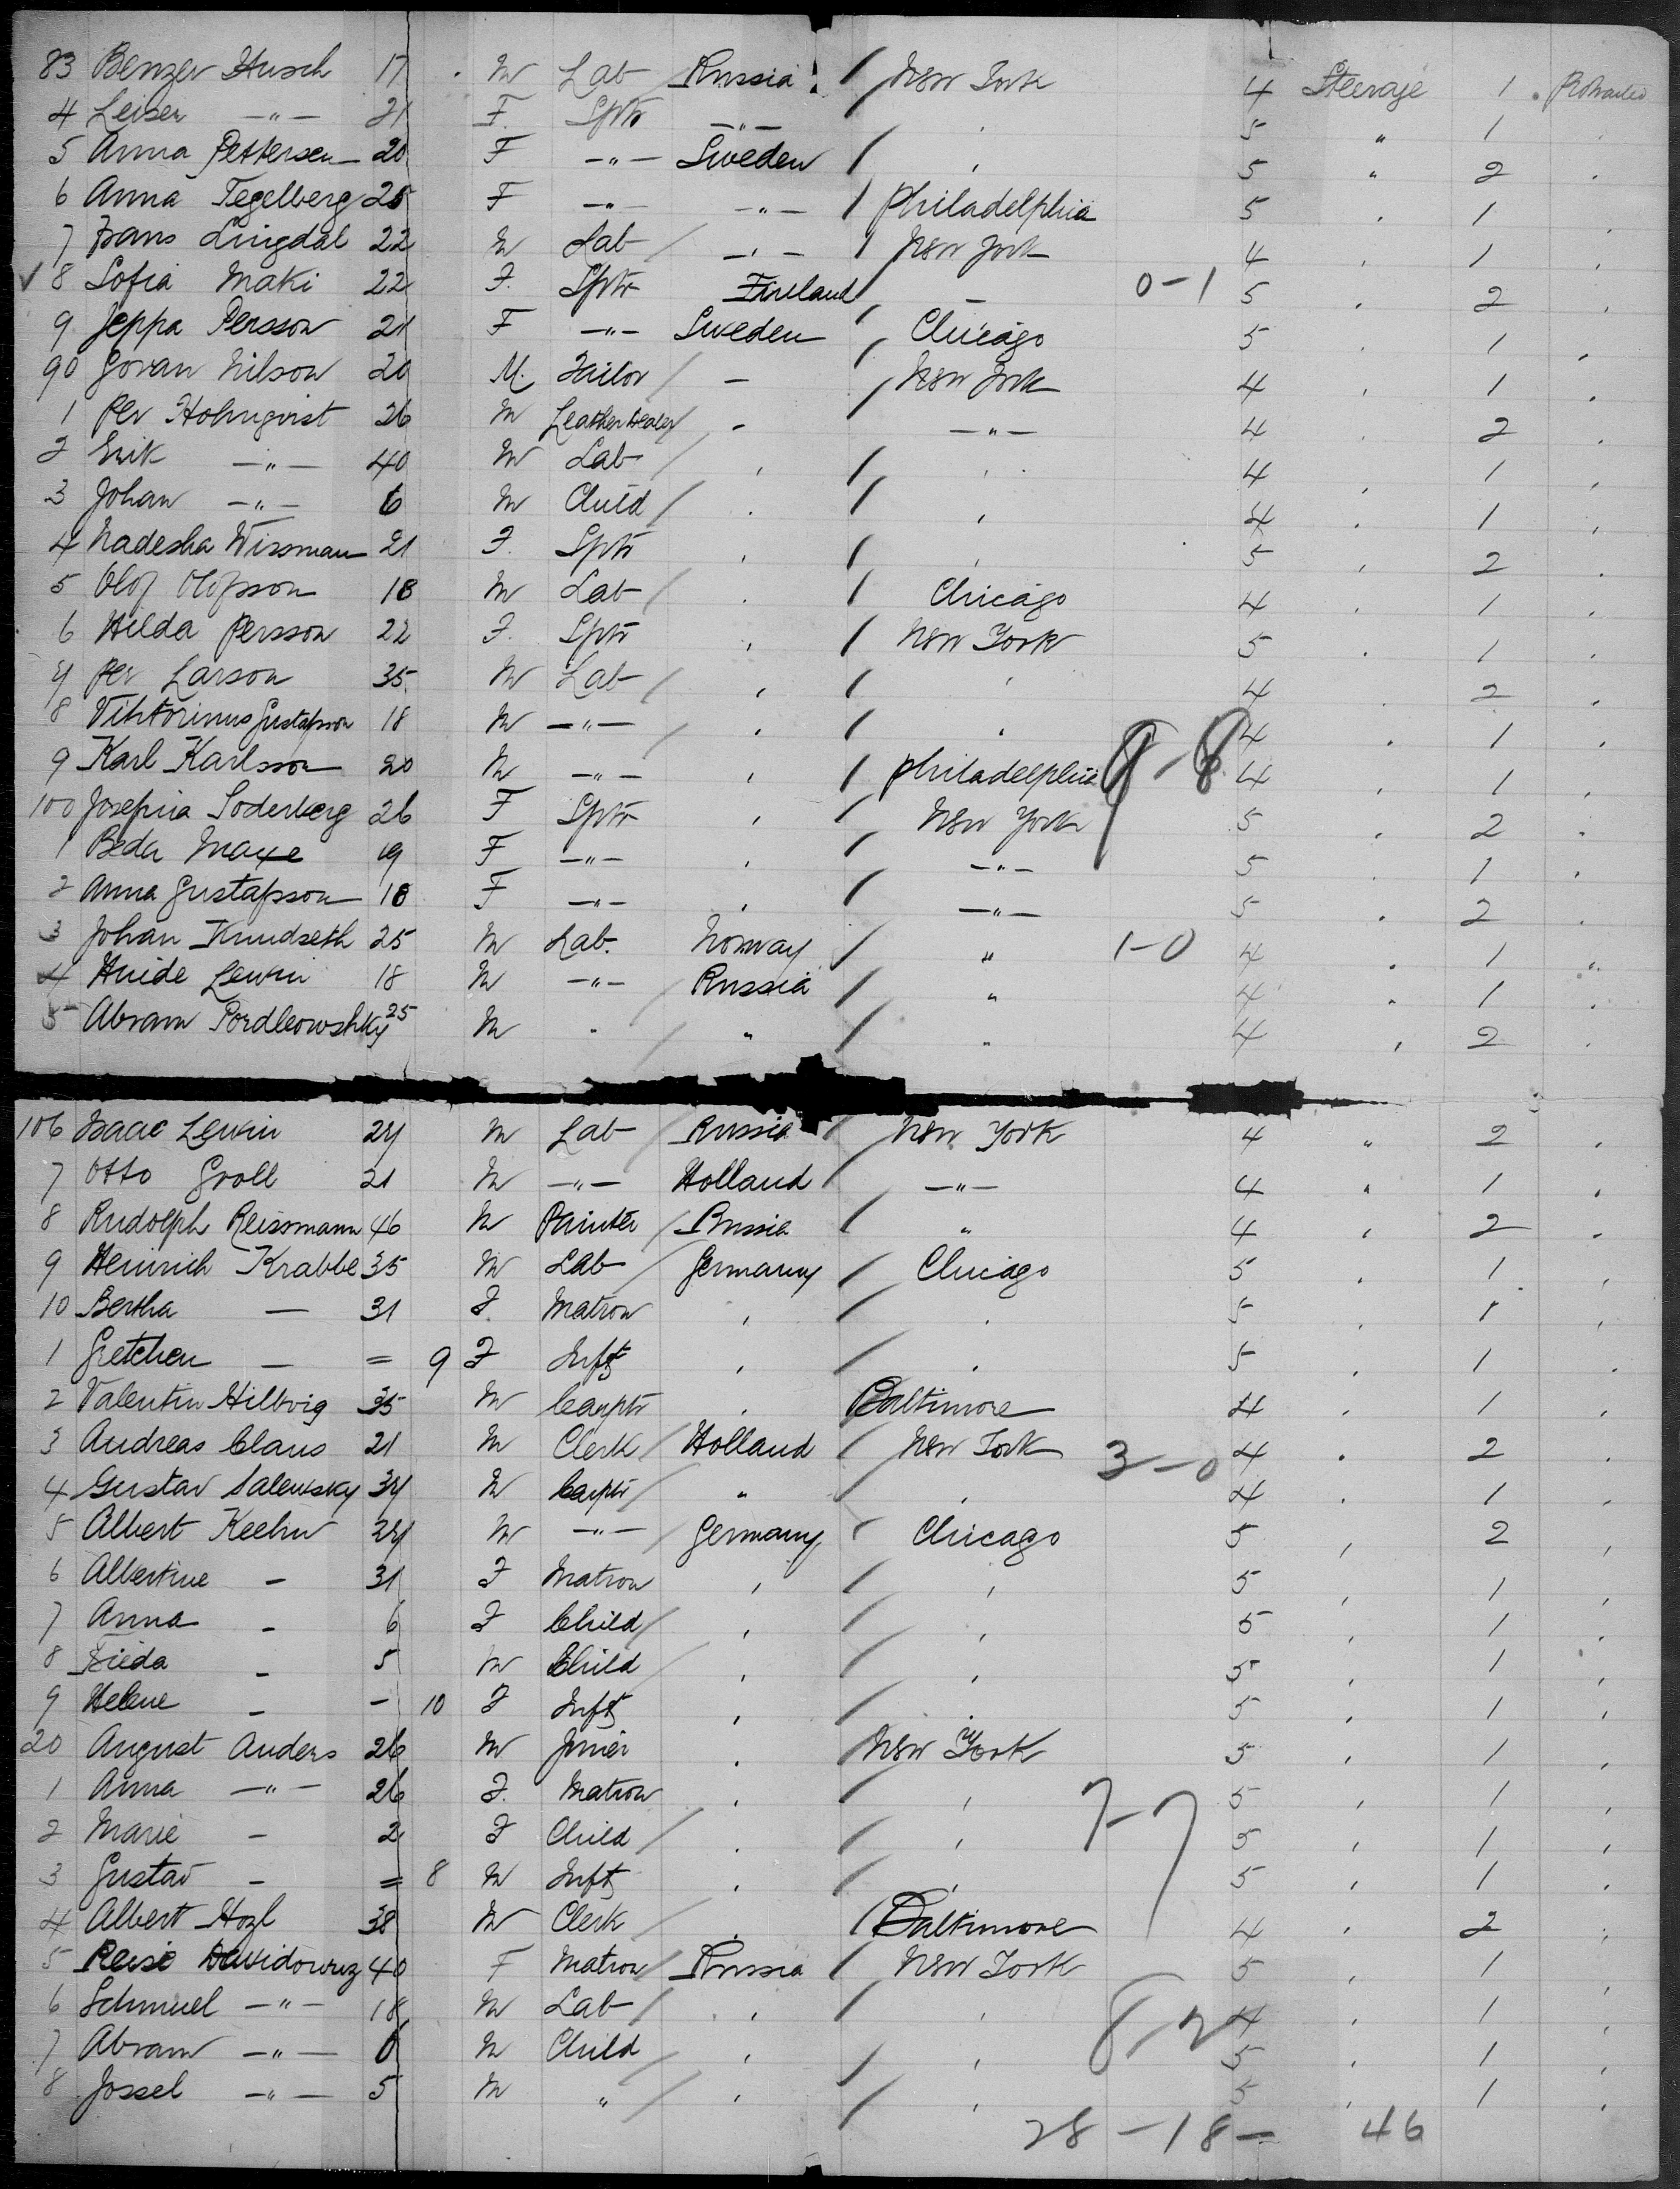 83 Benzer Husch 17 M Lab Russia / New York 4 Steerage 1 Protracted
4 Leiser -"- 21 F. Sptr -"- 5 " 1
5 Anna Pettersen 20 F -"- Sweden / 5 " 2
6 Anna Tegelberg 25 F -"- -"- / Philadelphia 5 1
7 Frans Lingdal 22 M Lab / -"- / New York 4 1
✓ 8 Sofia Maki 22 F. Sptr Finland / - 0-1 5 2
9 Jeppa Persson 21 F -"- Sweden / Chicago 5 1
90 Goran Nilson 20 M. Tailor / - / New York 4 1
1 Per Holmqvist 26 M Leather dealer / - -"- 4 2
2 Erik -"- 40 M Lab / / 4 1
3 Johan -"- 6 M Child / / 4 1
4 Nadesha Wissman 21 F. Sptr / 5 2
5 Olof Olofsson 18 M Lab / / Chicago 4 1
6 Hilda Persson 22 F. Sptr / New York 5 1
7 Per Larson 35 M Lab / / 4 2
8 Viktorinus Gustafsson 18 M -"- / / 4 1
9 Karl Karlsson 20 M -"- / Philadelphia 9-8 4 1
100 Josefina Soderberg 26 F Sptr / New York 5 2
1 Beda Maxe 19 F -"- / -"- 5 1
2 Anna Gustafsson 18 F -"- / -"- 5 2
3 Johan Knudseth 25 M Lab. Norway / " 1-0 4 1 "
4 Huide Lewin 18 M -"- / Russia / " 4 1
5 Abram Pordleowshky 25 M " / " / " 4 2
106 Isaac Lewin 27 M Lab / Russia / New York 4 " 2
7 Otto Groll 21 M -"- Holland / -"- 4 " 1
8 Rudolph Reissmann 46 M Painter / Russia / " 4 2
9 Heinrich Krabbe 35 M Lab / Germany / Chicago 5 1
10 Bertha - 31 F. Matron / 5 1
1 Gretchen - = 9 F Inft / 5 1
2 Valentin Hillvig 35 M Carptr Baltimore 4 1
3 Andreas Claus 21 M Clerk / Holland / New York 3-0 4 2
4 Gustav Salensky 37 M Carptr / " / 4 1
5 Albert Keehn 27 M -"- / Germany / Chicago 5 2
6 Albertine - 31 F Matron / 5 1
7 Anna - 6 F Child / / 5 1
8 Frieda - 5 M Child / / 5 1
9 Helene - - 10 F Inft / 5 1
20 August Anders 26 M Joiner / New York 5 1
1 Anna -"- 26 F. Matron / 5 1
2 Marie - 2 F Child / / 7-7 5 1
3 Gustav - = 8 M Inft / 5 1
4 Albert Hozl 38 M Clerk / / Baltimore 4 2
5 Reise Davidowiz 40 F Matron / Russia / New York 5 1
6 Schmuel -"- 18 M Lab / / 8-2 4 1
7 Abram -"- 6 M Child / / 5 1
8 Jossel -"- 5 M " / / 5 1
28 - 18 - 46